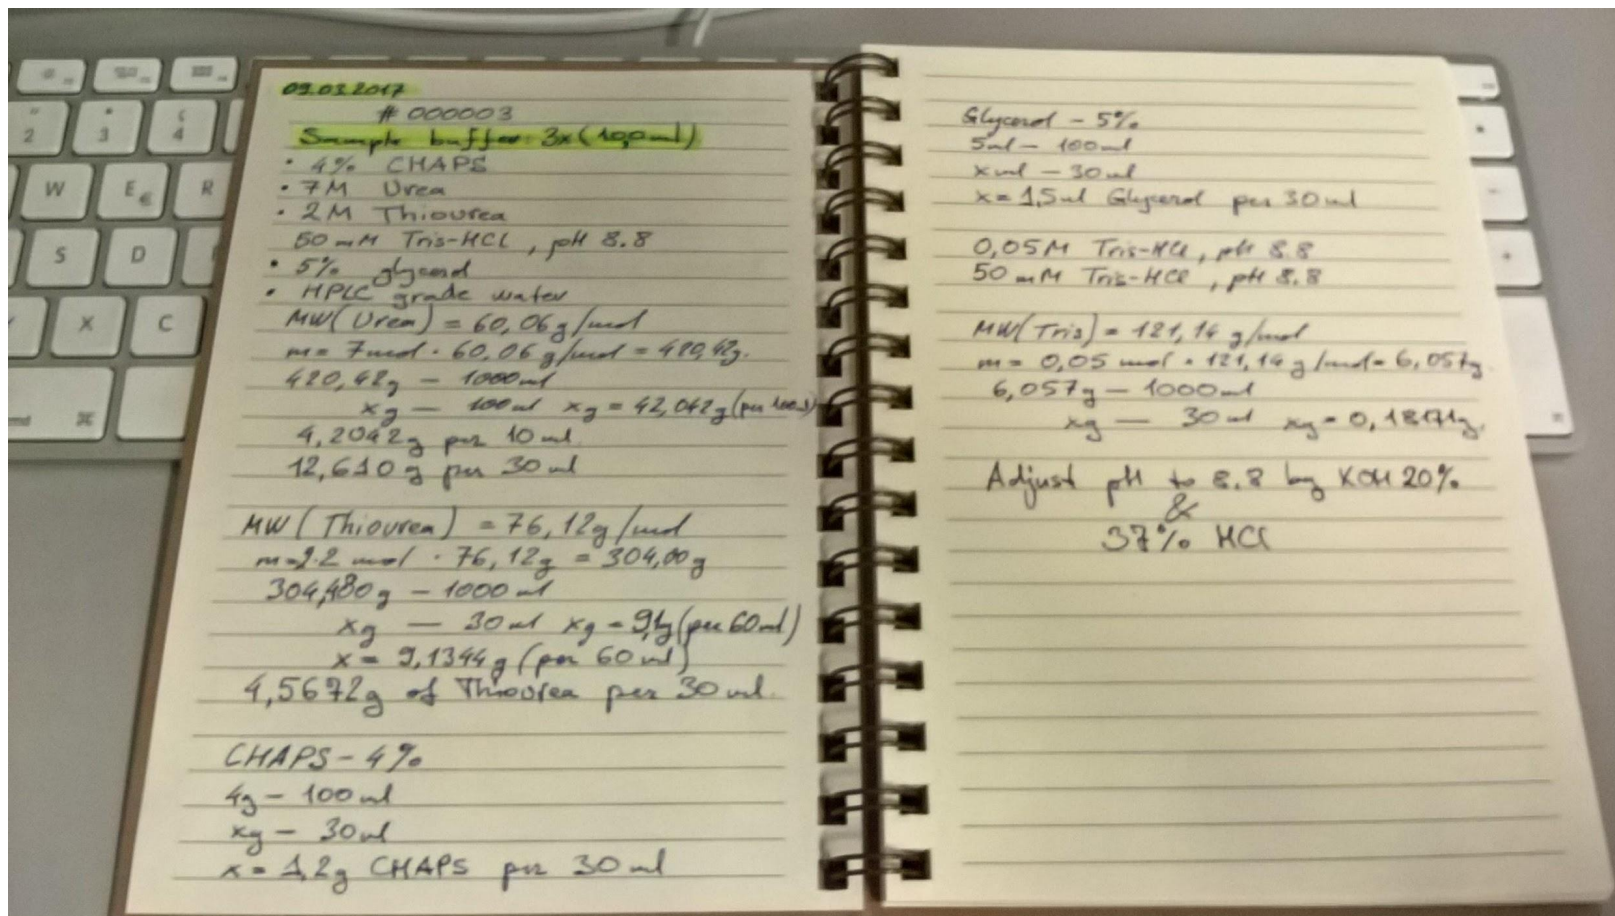 2
3
4
W
E €
R
S
D
X
C
⌘
09.03.2017
# 000003
Sample buffer: 3x (10,0ml)
• 4% CHAPS
• 7M Urea
• 2M Thiourea
50 mM Tris-HCl, pH 8.8
• 5% glycerol
• HPLC grade water
MW(Urea) = 60,06 g/mol
m = 7mol · 60,06 g/mol = 420,42g.
420,42g – 1000ml
xg – 100ml xg = 42,042g (per 100ml)
4,2042g per 10 ml
12,610g per 30 ml
MW (Thiourea) = 76,12g/mol
mol · 76,12g = 304,00g
304,480g – 1000ml
xg – 30ml xg = 9,1g (per 60ml)
x = 9,1344g (per 60 ml)
4,5672g of Thiourea per 30 ml.
CHAPS – 4%
4g – 100ml
xg – 30ml
x = 1,2g CHAPS per 30 ml
Glycerol – 5%
5ml – 100ml
xml – 30ml
x = 1,5ml Glycerol per 30 ml
0,05M Tris-HCl, pH 8.8
50 mM Tris-HCl, pH 8.8
MW(Tris) = 121,14 g/mol
m = 0,05 mol · 121,14 g/mol = 6,057g.
6,057g – 1000ml
xg – 30 ml xg = 0,18171g.
Adjust pH to 8.8 by KOH 20%
&
37% HCl